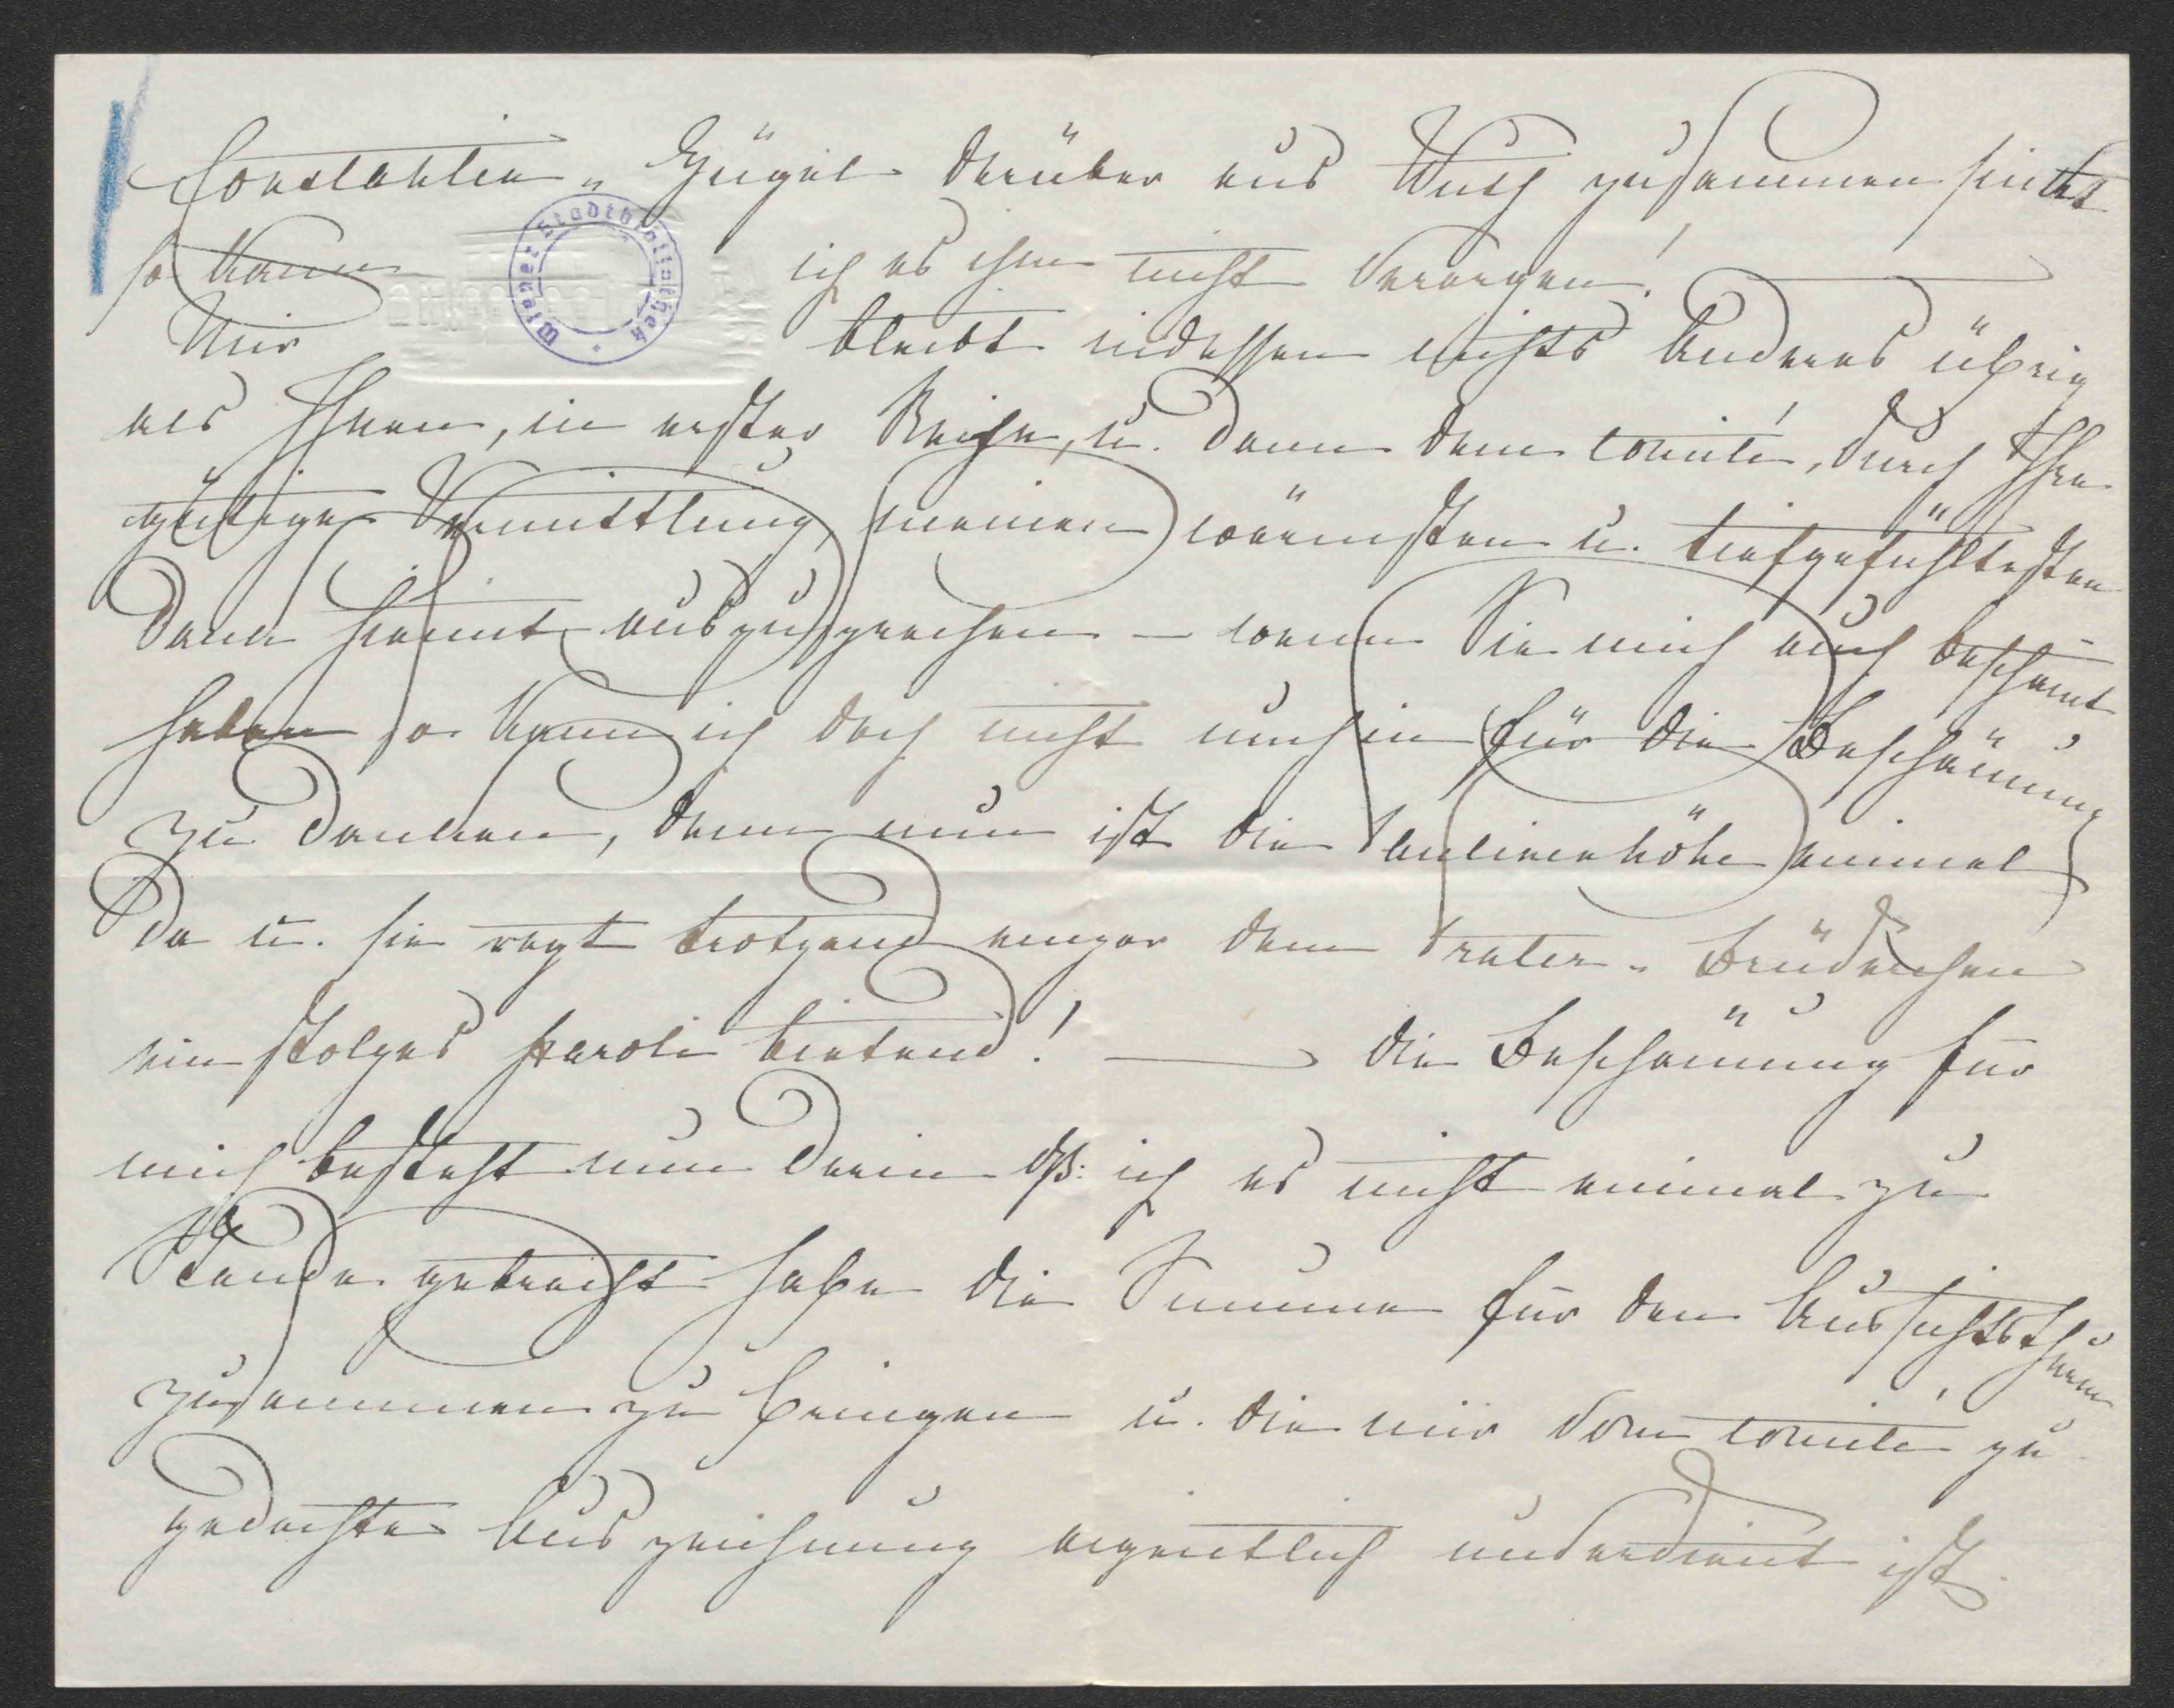 Constantin-Hügel darüber aus Wuth zusammen sinkt
so kann ich es ihm nicht verargen!
Mir bleibt indessen nichts Anderes übrig
als Ihnen, in erster Reihe, u. dann dem Comité, durch Ihre
gütige Vermittlung, meinen wärmsten u. tiefgefühltesten
Dank hiemit auszusprechen — wenn Sie mich auch beschämt
haben so kann ich doch nicht umhin für die Beschämung
zu danken, denn nun ist die Paulinenhöhe einmal
da u. sie ragt trotzend empor dem Prater-Brüderchen
ein stolzes Paroli bietend! — Die Beschämung für
mich besteht nun darin dß: ich es nicht einmal zu
Stande gebracht habe die Summe für den Aussichtsthurm
zusammen zu bringen u. die mir vom Comité zu
gedachte Auszeichnung eigentlich unverdient ist.
Wiener Stadtbibliothek